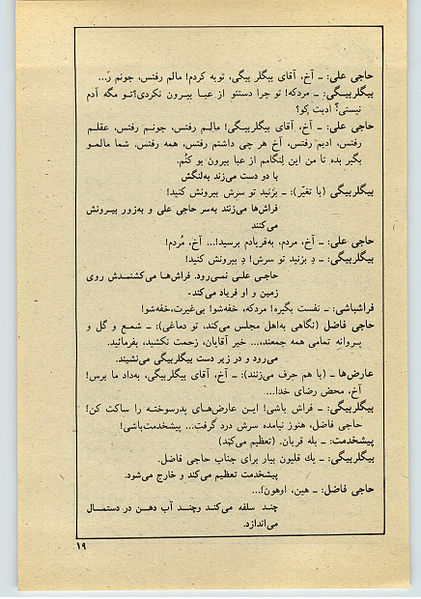 حاجی علی: ـ آخ، آقای بیگلر بیگی، توبه کردم! مالم رفتس، جونم رَ...
بیگلربیگی: ـ مردکه! تو چرا دستتو از عبا بیرون نکردی؟ تو مگه آدم
نیستی؟ ادبت کو؟
حاجی علی: ـ آخ، آقای بیگلربیگی! مالم رفتس، جونم رفتس، عقلم
رفتس، ادبم رفتس، آخ هر چی داشتم رفتس، همه رفتس. شما مالمو
بگیر بده تا من این لنگامم از عبا بیرون بو کنم.
با دو دست می‌زند به‌لنگش
بیگلربیگی (با تغیّر): ـ بزنید تو سرش بیرونش کنید!
فراش‌ها می‌زنند به‌سر حاجی علی و به‌زور بیرونش
می‌کنند
حاجی علی: ـ آخ، مردم، به‌فریادم برسید!... آخ، مُردم!
بیگلربیگی: ـ دِ بزنید تو سرش! دِ بیرونش کنید!
حاجی علی نمی‌رود. فراش‌ها می‌کشندش روی
زمین و او فریاد می‌کند.
فراشباشی: ـ نفست بگیره! مردکه، خفه‌شو! بی‌غیرت، خفه‌شو!
حاجی فاضل (نگاهی به‌اهل مجلس می‌کند، تو دماغی): ـ شمع و گل و
پروانه تمامی همه جمعند،... خبر آقایان، زحمت نکشید، بفرمائید.
می‌رود و در زیر دست بیگلربیگی می‌نشیند.
عارض‌ها ـ (با هم حرف می‌زنند): ـ آخ، آقای بیگلربیگی، به‌داد ما برس!
آخ، محض رضای خدا...
بیگلربیگی: ـ فراش باشی! این عارض‌های پدرسوخته را ساکت کن!
حاجی فاضل، هنوز نیامده سرش درد گرفت... پیشخدمت‌باشی!
پیشخدمت: ـ بله قربان. (تعظیم می‌کند)
بیگلربیگی: ـ یك قلیون بیار برای جناب حاجی فاضل.
پیشخدمت تعظیم می‌کند و خارج می‌شود.
حاجی فاضل: ـ هین، اوهون!...
چند سلفه می‌کند وچند آب دهن در دستمال
می‌اندازد.
۱۹